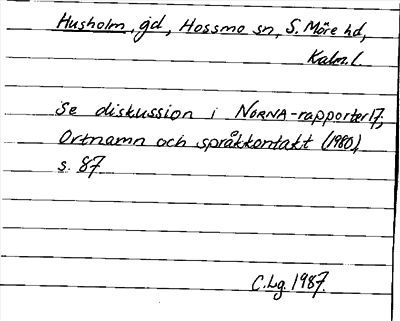 Husholm, gd, Hossmo sn, S. Möre hd,
Kalm. l.
Se diskussion i NORNA-rapporter 17,
Ortnamn och språkkontakt (1980),
s. 87
C.Lg. 1987.